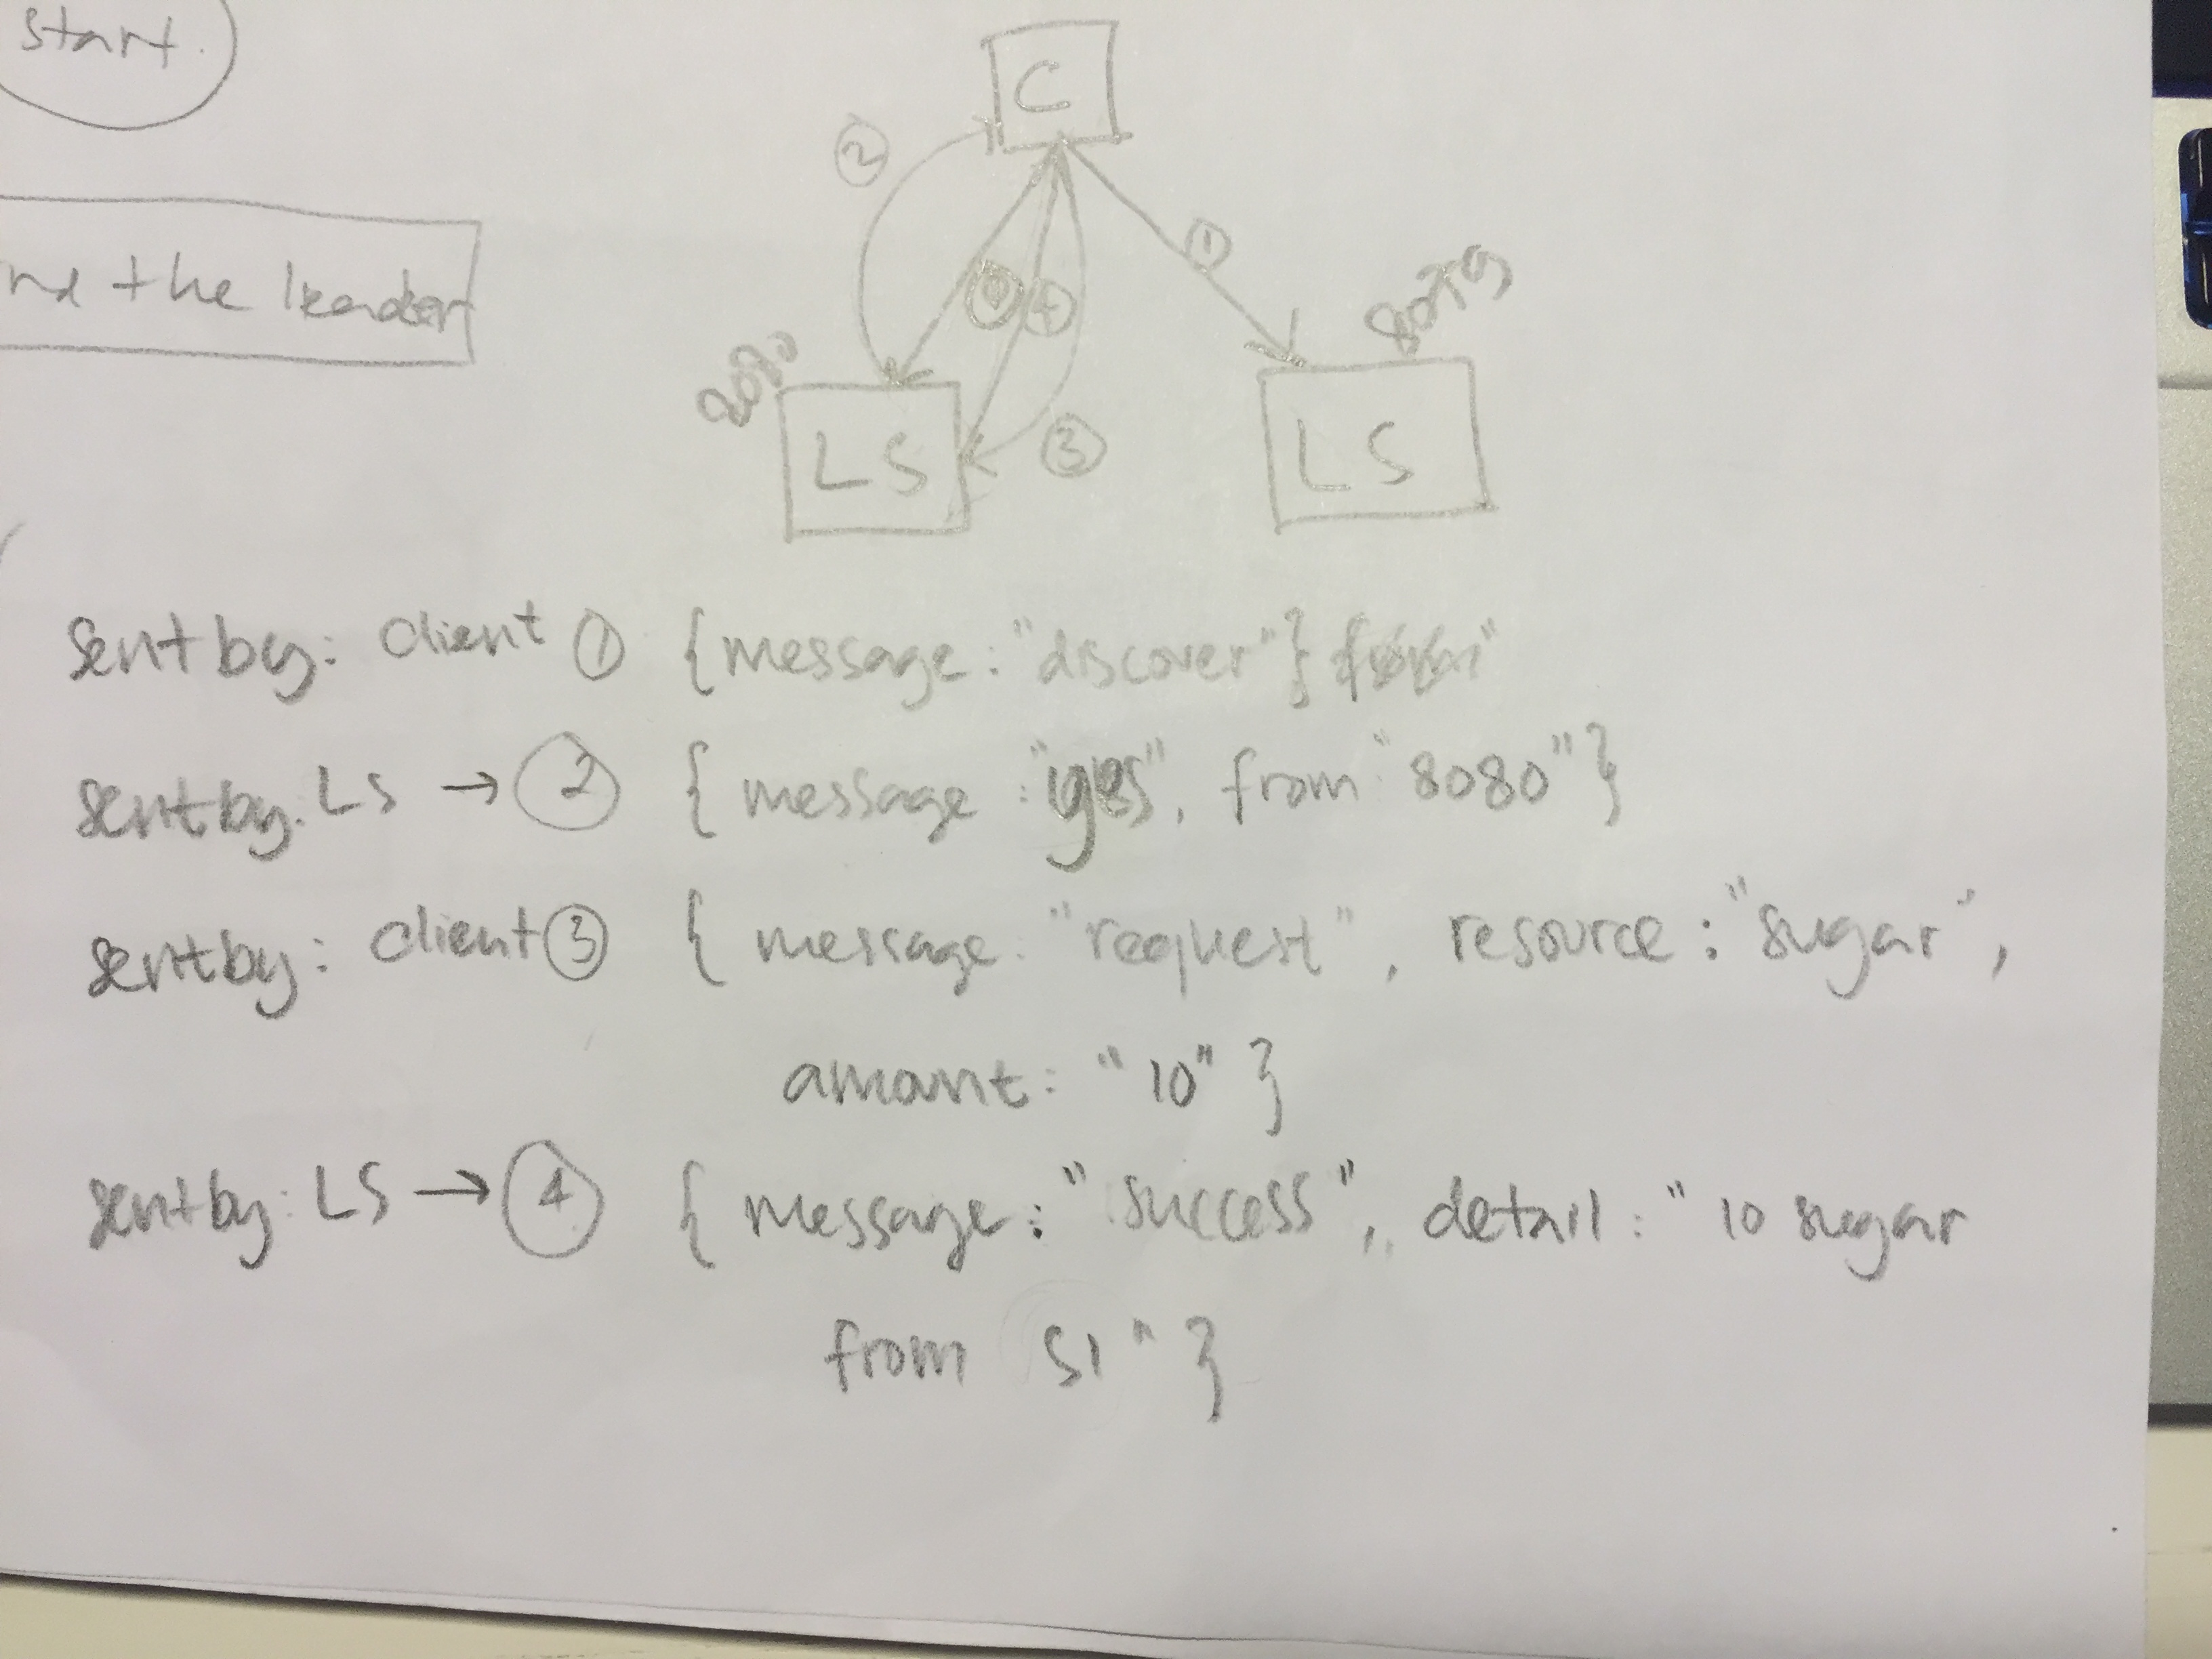 start.
C
②
①
① ④
8080
8079
the leader
LS
③
LS
sent by: client ① {message: "discover"}
sent by: LS → ② {message: "yes", from "8080"}
sent by: client ③ {message: "request", resource: "sugar",
amount: "10"}
sent by: LS → ④ {message: "success", detail: "10 sugar
from S1"}